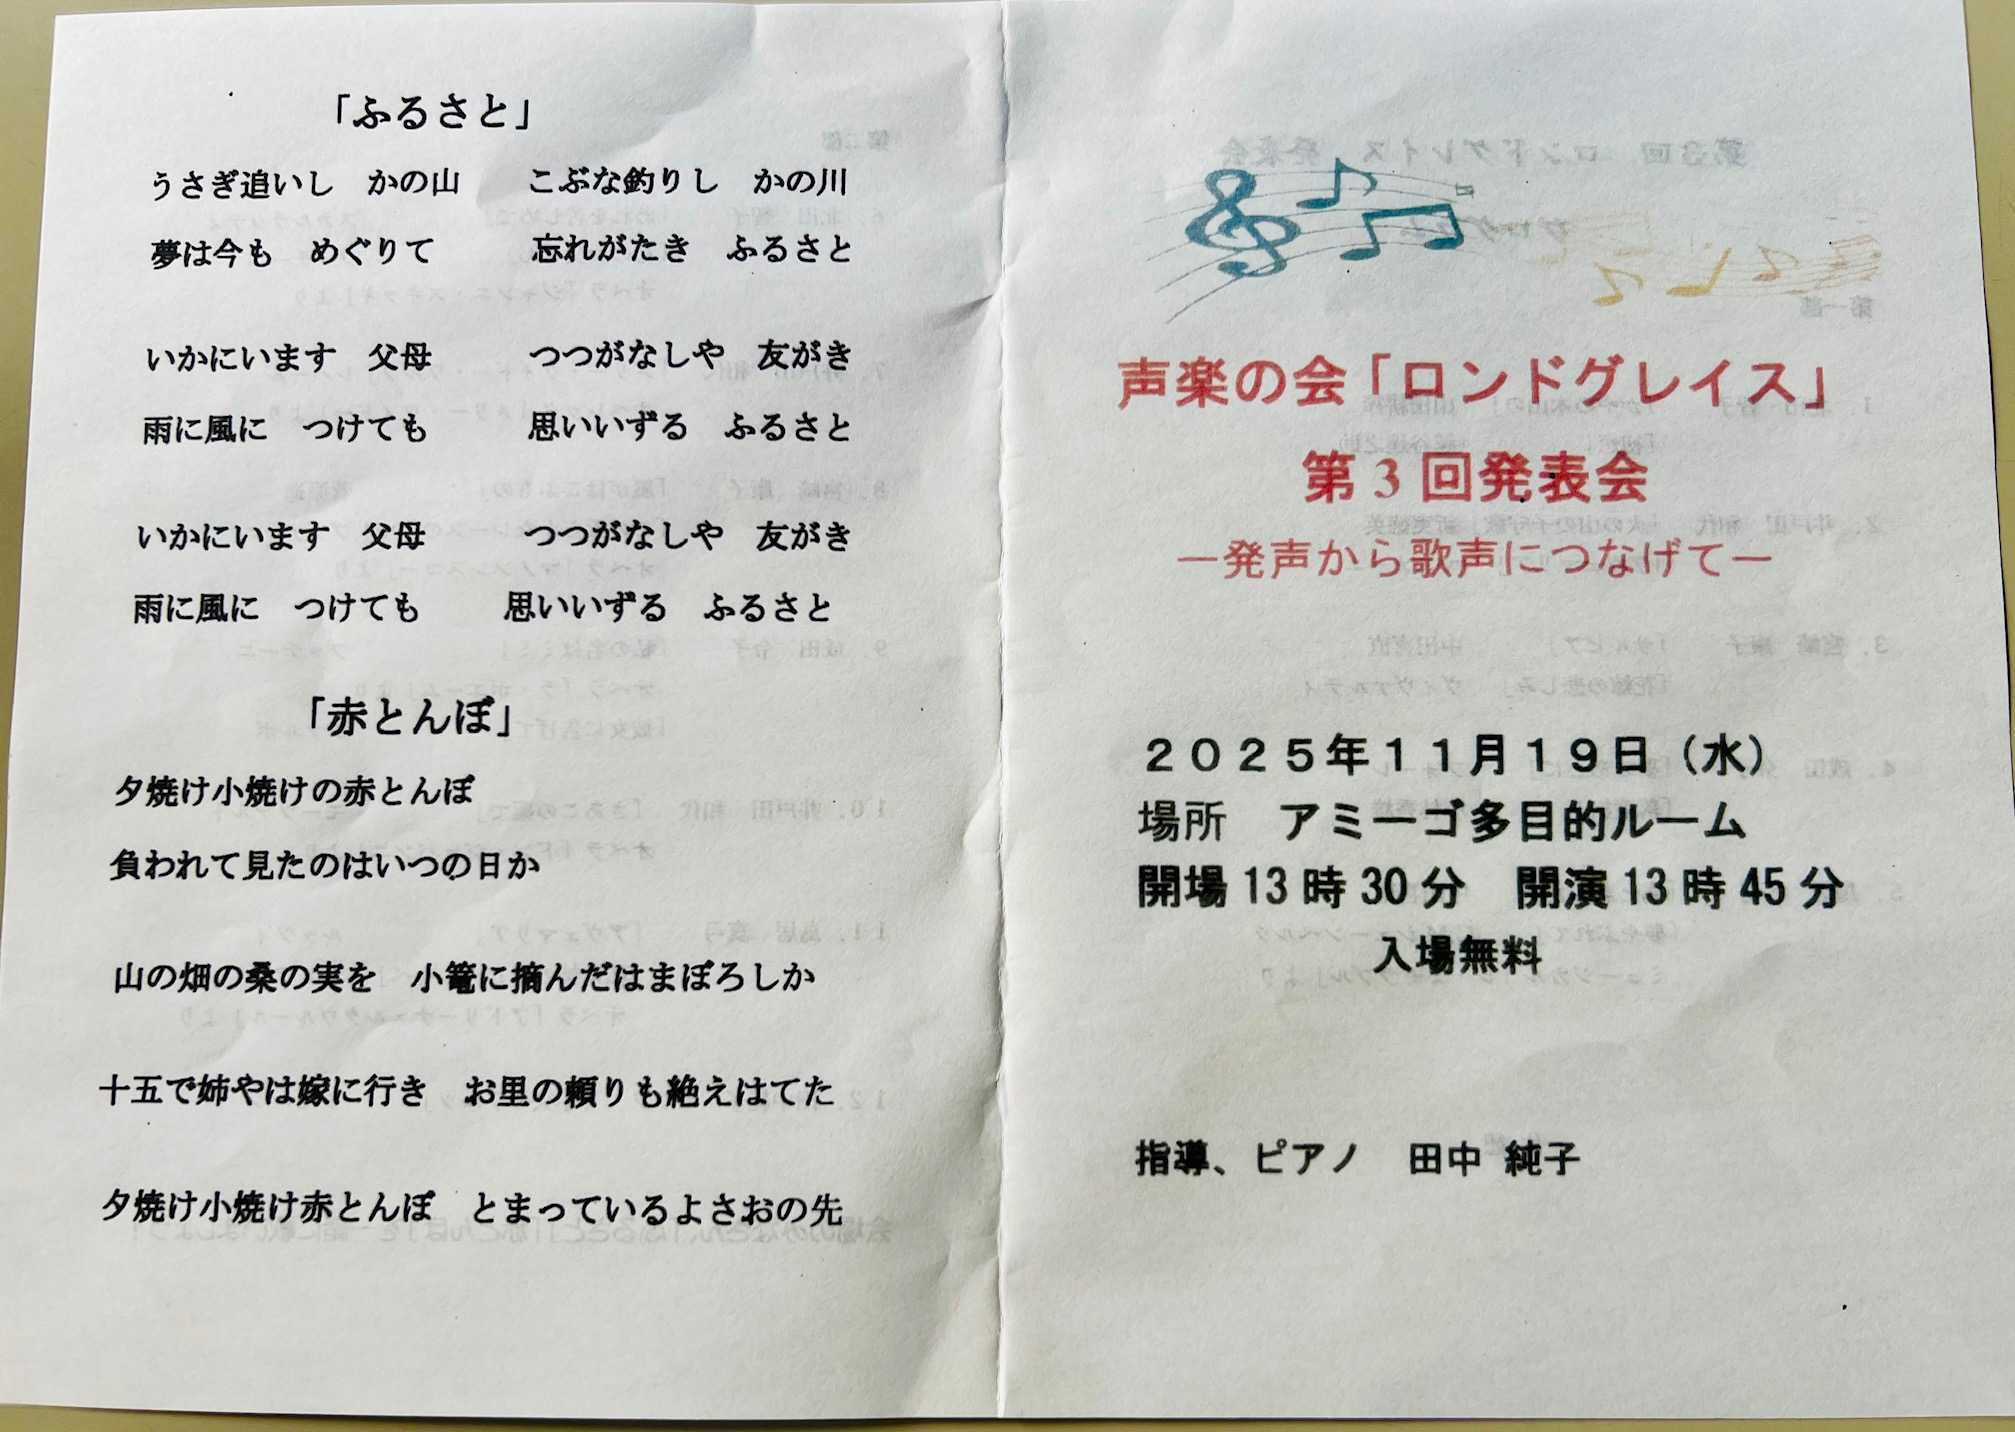 「ふるさと」
うさぎ追いし　かの山　　こぶな釣りし　かの川
夢は今も　めぐりて　　忘れがたき　ふるさと
いかにいます　父母　　つつがなしや　友がき
雨に風に　つけても　　思いいずる　ふるさと
いかにいます　父母　　つつがなしや　友がき
雨に風に　つけても　　思いいずる　ふるさと
「赤とんぼ」
夕焼け小焼けの赤とんぼ
負われて見たのはいつの日か
山の畑の桑の実を　小篭に摘んだはまぼろしか
十五で姉やは嫁に行き　お里の頼りも絶えはてた
夕焼け小焼け赤とんぼ　とまっているよさおの先
声楽の会「ロンドグレイス」
第３回発表会
ー発声から歌声につなげてー
２０２５年１１月１９日（水）
場所　アミーゴ多目的ルーム
開場13時30分　開演13時45分
入場無料
指導、ピアノ　田中 純子